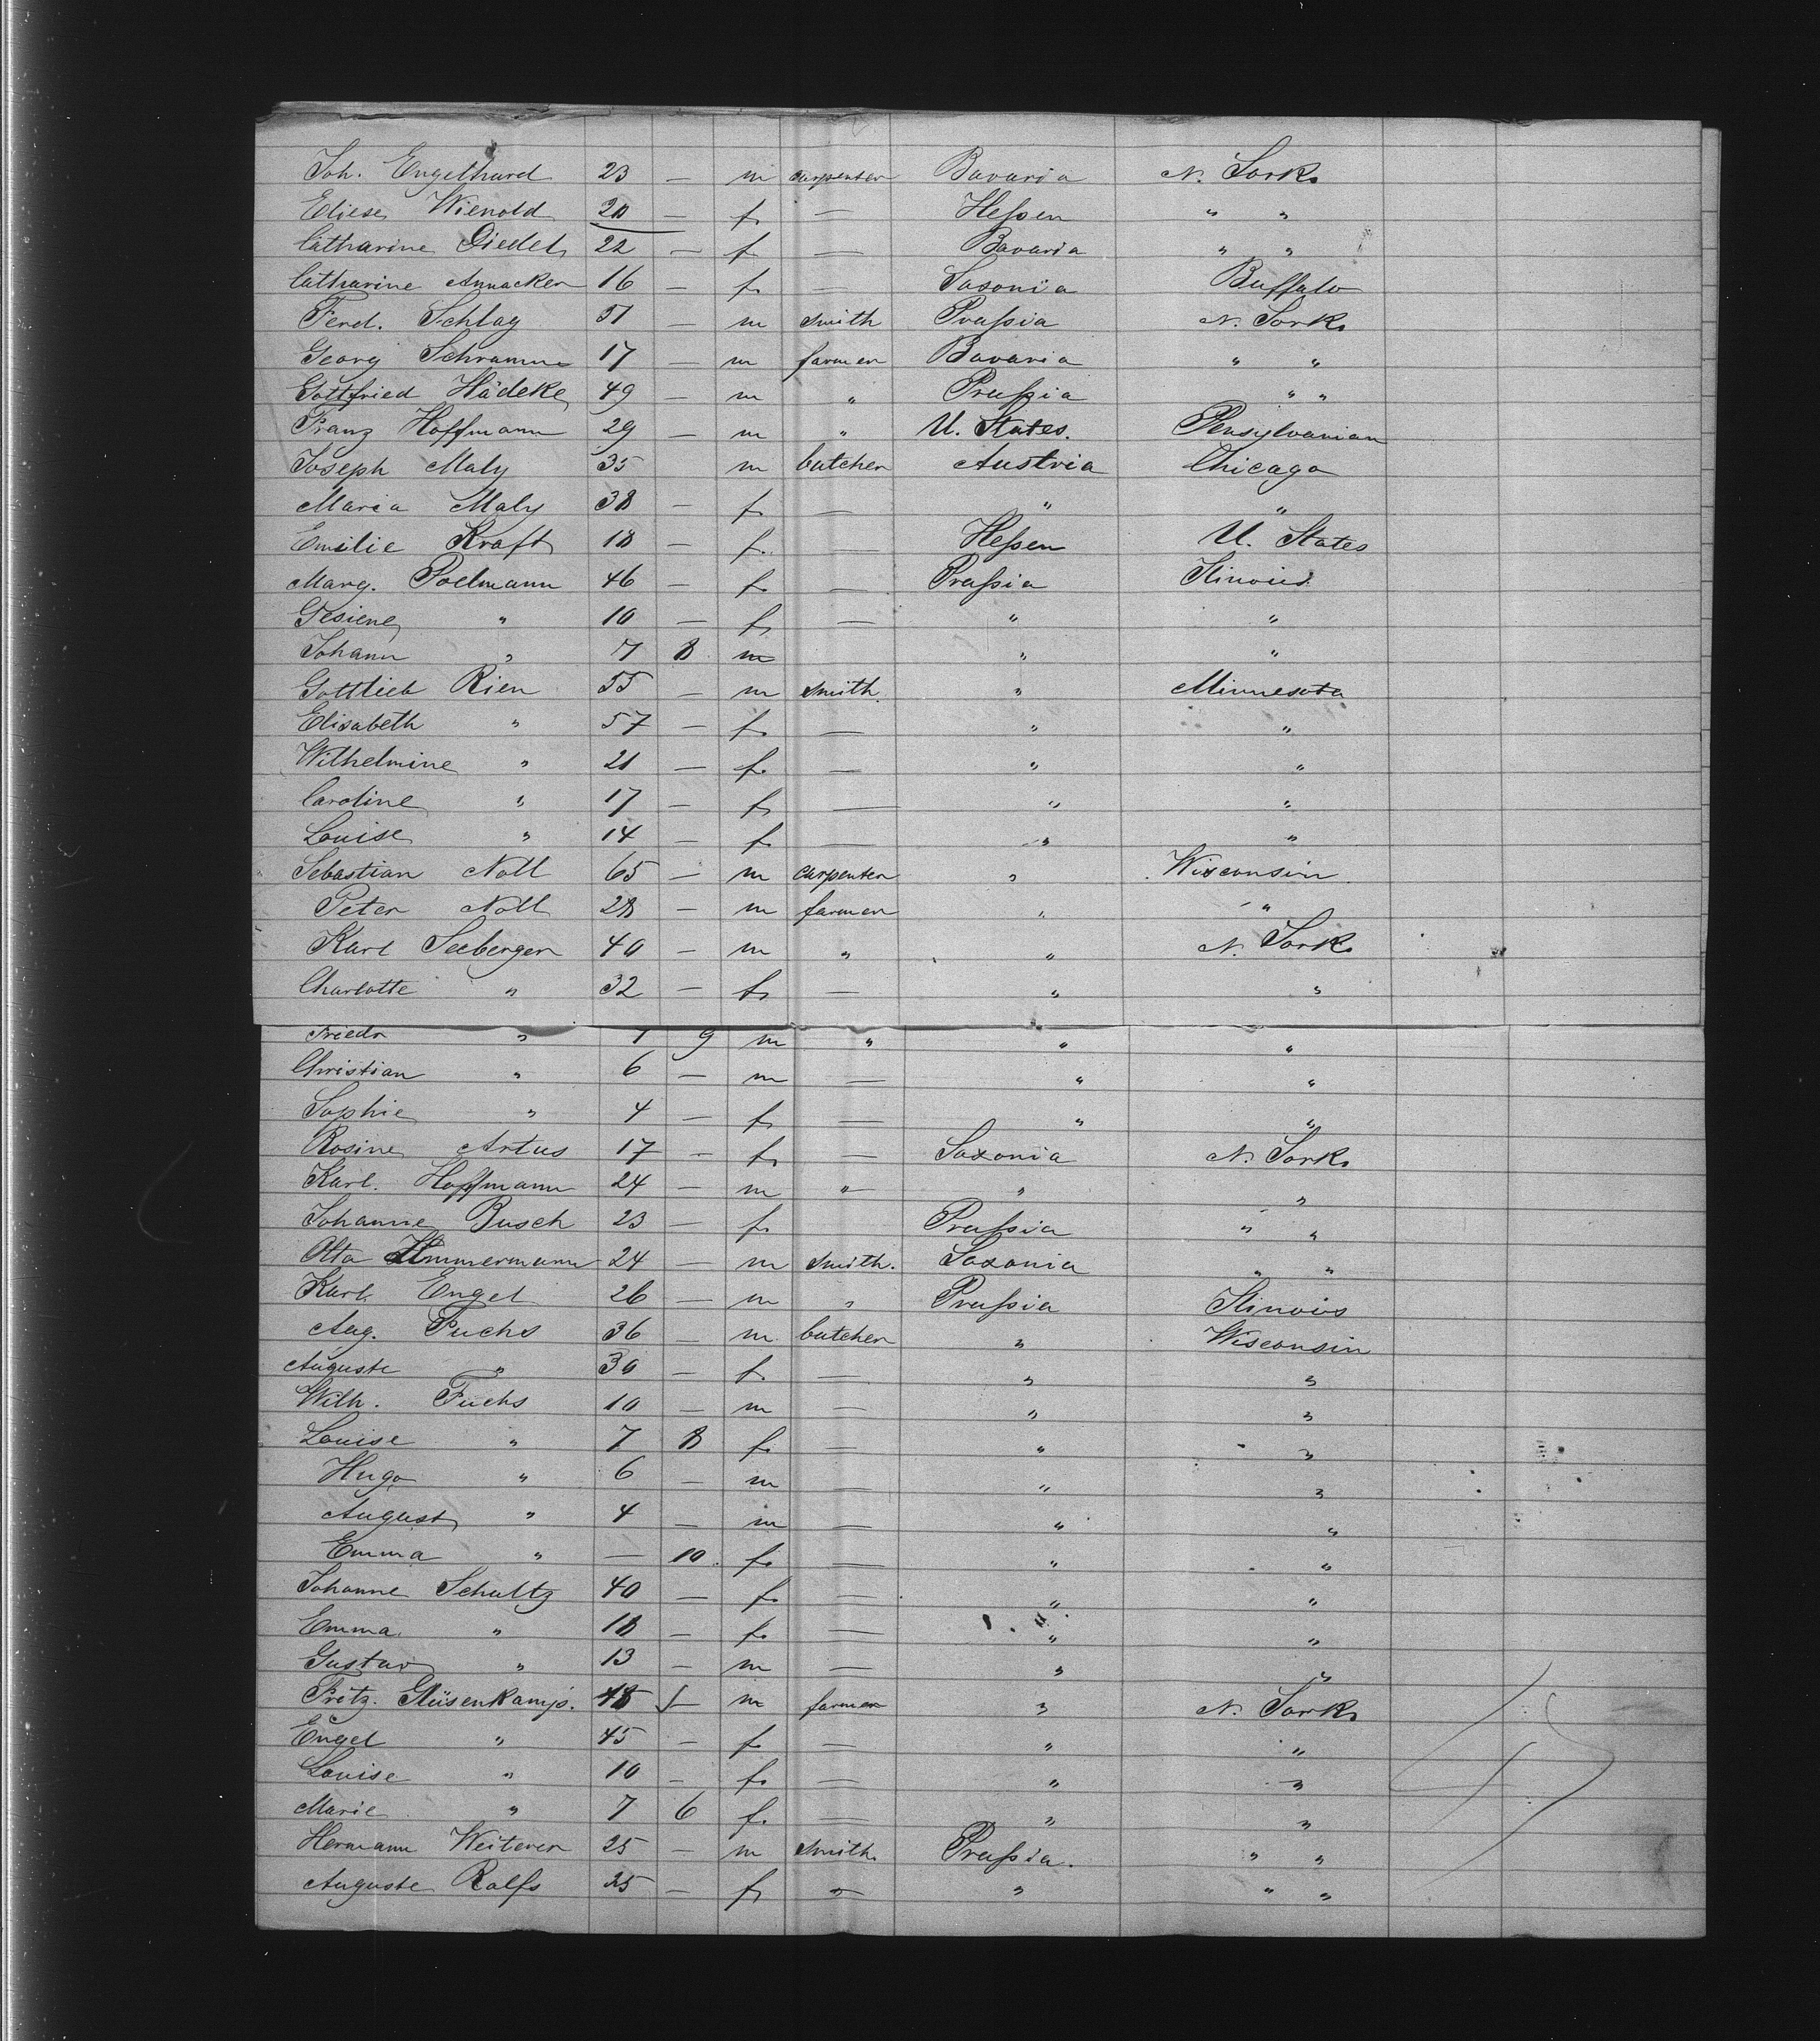 Joh. Engelhard 23 — m carpenter Bavaria N. York
Eliese Wienold 20 — f. — Hessen " "
Catharine Diedel 22 — f — Bavaria " "
Catharine Annacker 16 — f. — Saxonia Buffalo
Ferd. Schlag 51 — m smith Prussia N. York
Georg Schramm 17 — m farmer Bavaria " "
Gottfried Hädeke 49 — m " Prussia " "
Franz Hoffmann 29 — m " U. States. Pensylvanian
Joseph Maly 35 m butcher Austria Chicago
Maria Maly 38 — f. — " "
Emilie Kraft 18 — f. — Hessen U. States
Marg. Poelmann 46 — f. — Prussia Ilinois
Gesiene " 10 — f. — " "
Johann " 7 8 m " "
Gottlieb Rien 55 — m smith. " Minnesota
Elisabeth " 57 — f. — " "
Wilhelmine " 21 — f. — " "
Caroline " 17 — f. — " "
Louise " 14 — f. — " "
Sebastian Noll 65 — m carpenter " Wisconsin
Peter Noll 28 — m farmer " "
Karl Seeberger 40 — m " " N. York
Charlotte " 32 — f. — " "
Friedr " 7 9 m " " "
Christian " 6 — m — " "
Sophie " 4 — f. — " "
Rosine Artus 17 — f. — Saxonia N. York
Karl. Hoffmann 24 — m " " "
Johanne Busch 23 — f. Prussia " "
Otto Zimmermann 24 — m smith. Saxonia " "
Karl Engel 26 — m " Prussia Ilinois
Aug. Fuchs 36 — m butcher " Wisconsin
Auguste " 30 — f. — " "
Wilh. Fuchs 10 — m — " "
Louise " 7 8 f. — " "
Hugo " 6 — m — " "
August " 4 — m — " "
Emma " — 10. f. — " "
Johanne Schultz 40 — f. — " "
Emma. " 18 — f. — " "
Gustav " 13 — m — " "
Fritz. Glüsenkamp. 48 — m farmer " N. York
Engel " 45 — f. — " "
Louise " 10 — f. — " "
Marie " 7 6 f. — " "
Hermann Weiterer 25 — m smith. Prussia. " "
Auguste Rolfs 25 — f. — " " "